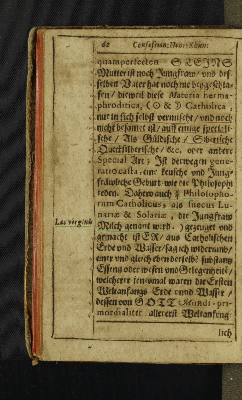 62 Confession: Henr: Khun:
quamperfecten STEINS
Mutter ist noch Jungfraw / und des
selben Vater hat noch nie beygeschla-
fen / dieweil diese Materia herma-
phroditica, (☉ & ☽) Catholica,
nur in sich selbst vermischt / und noch
nicht bestimet ist / auff einige speciali-
sche / Als Güldische / Silberische
Quecksilberische / &c. oder andere
Special Art; Ist derwegen gene-
ratio casta, eine keusche und Jung-
fräwliche Geburt wie die Philosophi
reden. Daher auch ☿ Philosopho-
rum Catholicus, als succus Lu-
nariæ & Solariæ, die Jungfraw
Lac virginis
Milch genant wird.) gezeuget und
gemacht ist ER / aus Catholischen
Erde und Wasser / sag ich widerumb /
einer und gleich eben derselbē substantz
Essens oder wesen und Gelegenheit /
welcherley einmal waren die Ersten
Weltanfangs Erde und Wasser /
dessen von GOTT Mundi pri-
mordialiter allererst Weltanfeng-
lich